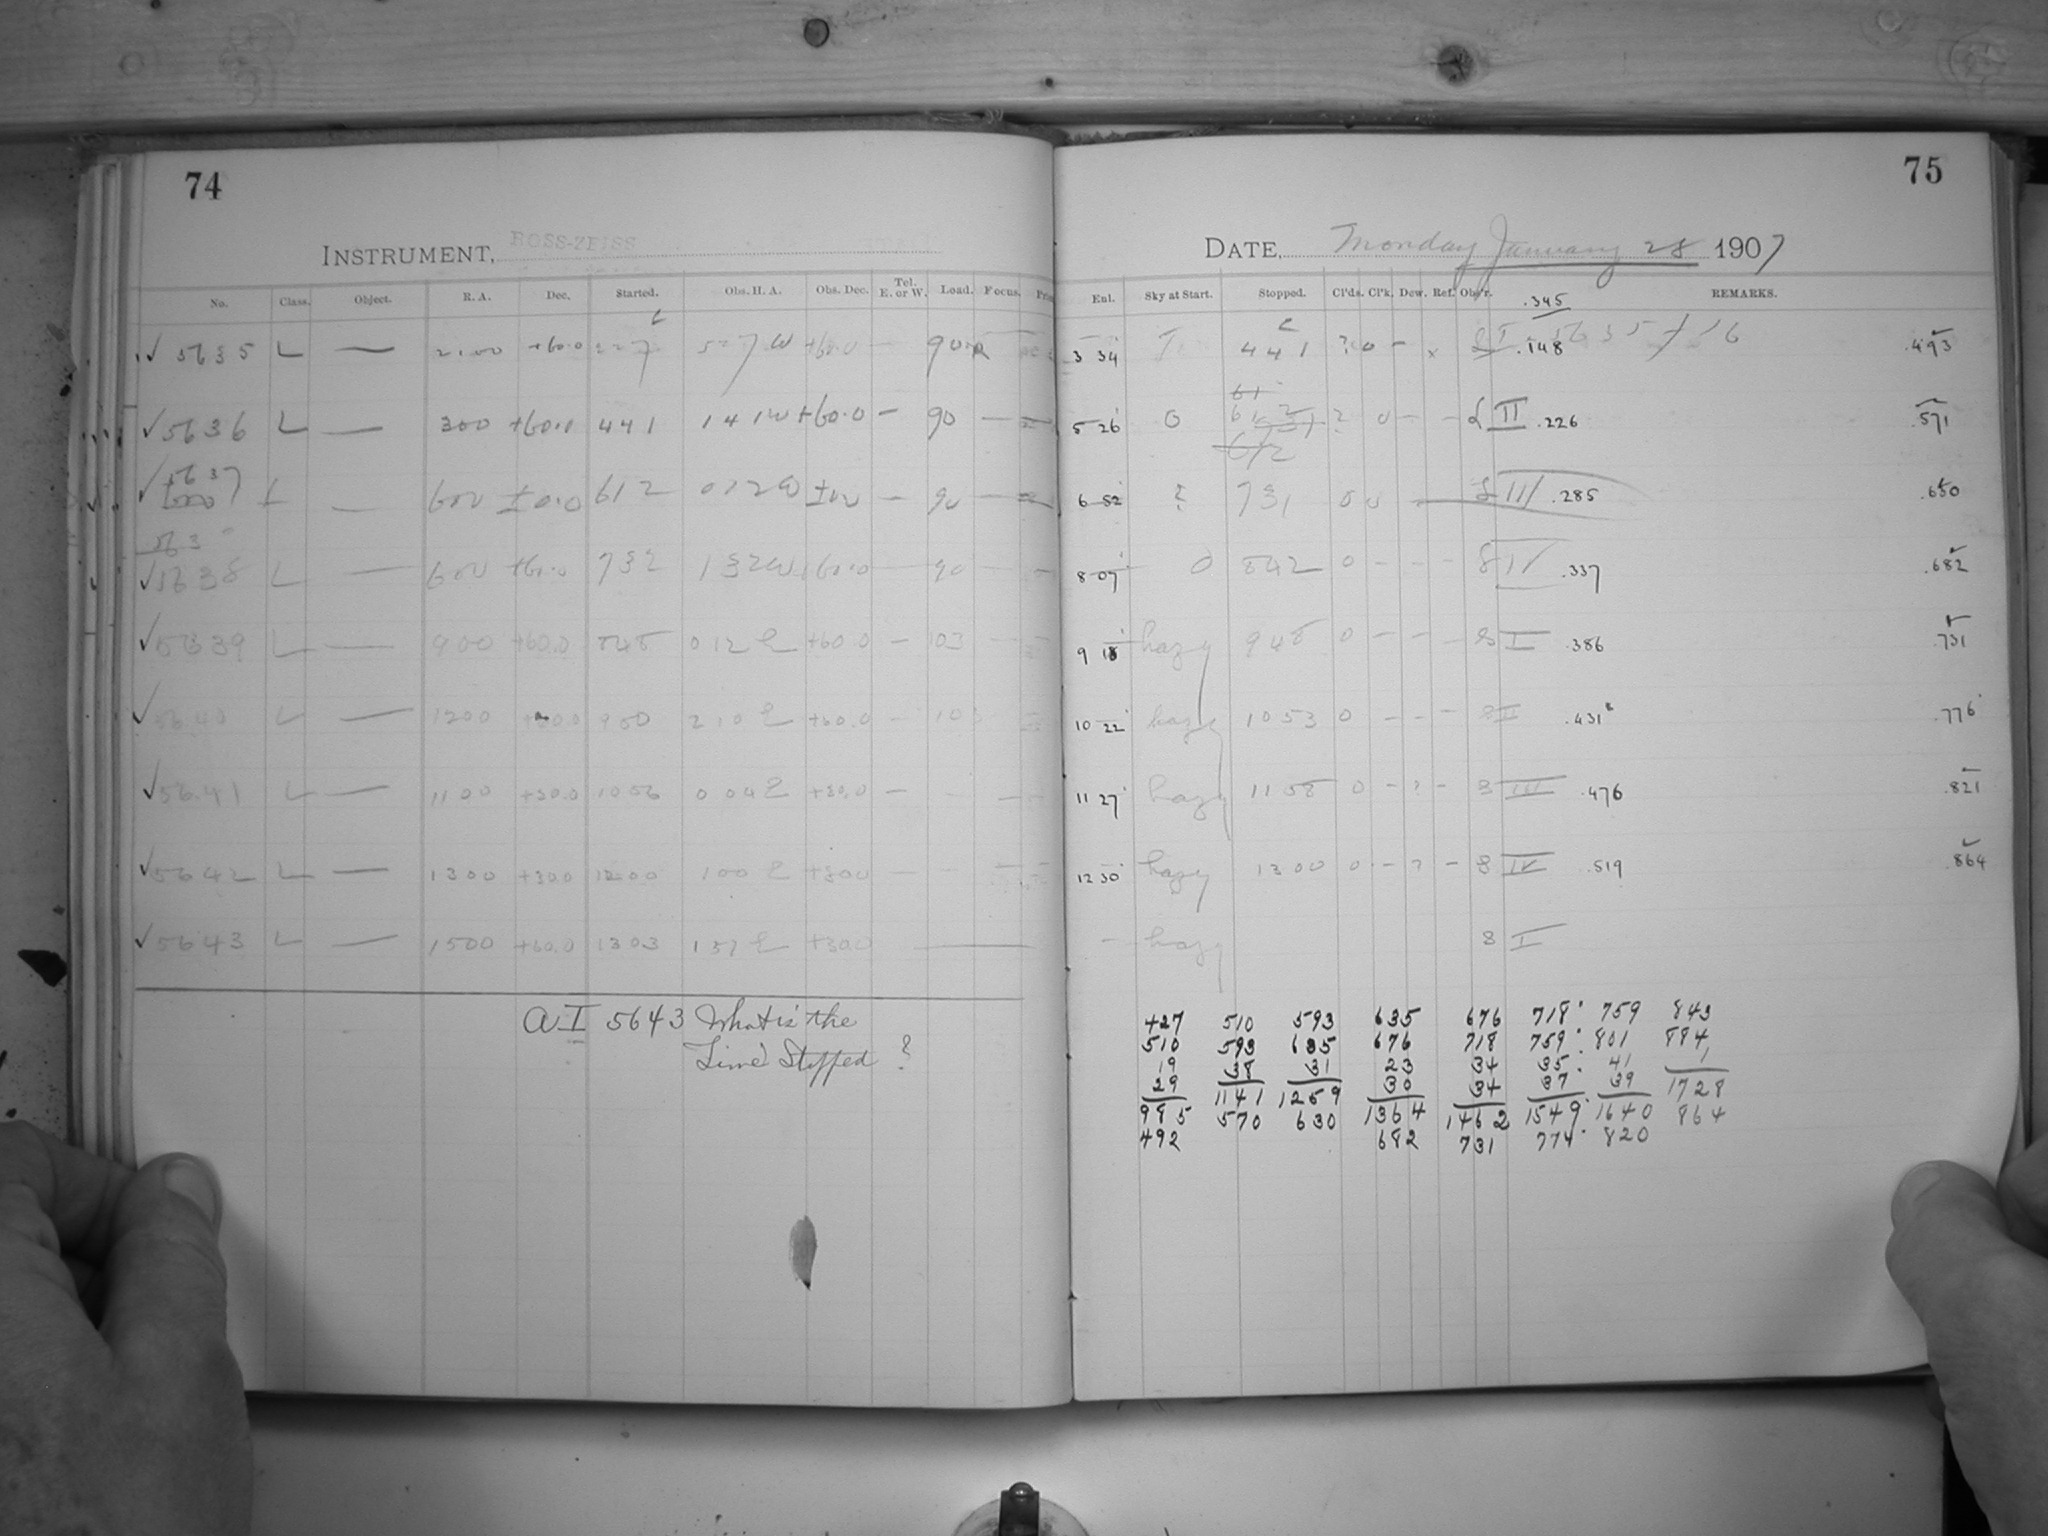 74
75
INSTRUMENT, ROSS-ZEISS
DATE, Monday January 28 1907
No. Class. Object. R. A. Dec. Started. Obs. H. A. Obs. Dec. Tel. E. or W. Load. Focus.
Enl. Sky at Start. Stopped. Cl'ds. Cl'k. Dew. Ref. Obs'r. .345 REMARKS.
✓ 5635 L — +60.0 3 34 441 ? 0 – x I .148 .493
✓ 5636 L — 300 +60.0 441 141W +60.0 – 90 — 5 26 0 612 ? 0 – – II .226 .571
✓ 5637 L — 600 ±0.0 612 012W — 90 — 6 52 ? 731 0 0 III .285 .650
✓ 5638 L — 600 +60.0 732 132W +60.0 — 90 8 07 0 842 0 – – – 8 IV .337 .682
✓ 5639 L — 900 +60.0 845 012E +60.0 – 103 9 18 hazy 948 0 – – – 8 I .386 .731
✓ 5640 L — 1200 950 210E +60.0 – 103 10 22 hazy 1053 0 – – – 8 II .431 .776
✓ 5641 L — 1100 +30.0 1056 004E +30.0 – 11 27 hazy 1158 0 – ? – 8 III .476 .821
✓ 5642 L — 1300 +30.0 1200 100E +30.0 – 12 30 hazy 1300 0 – ? – 8 IV .519 .864
✓ 5643 L — 1500 +60.0 1303 157E +30.0 — hazy 8 I
A I 5643 What is the
Time Stopped ?
427 510 593 635 676 718 759 843
510 593 635 676 718 759 801 884
19 38 31 23 34 35 41 1
29 30 34 37 39 1728
985 1141 1259 1364 1462 1549 1640 864
492 570 630 682 731 774 820